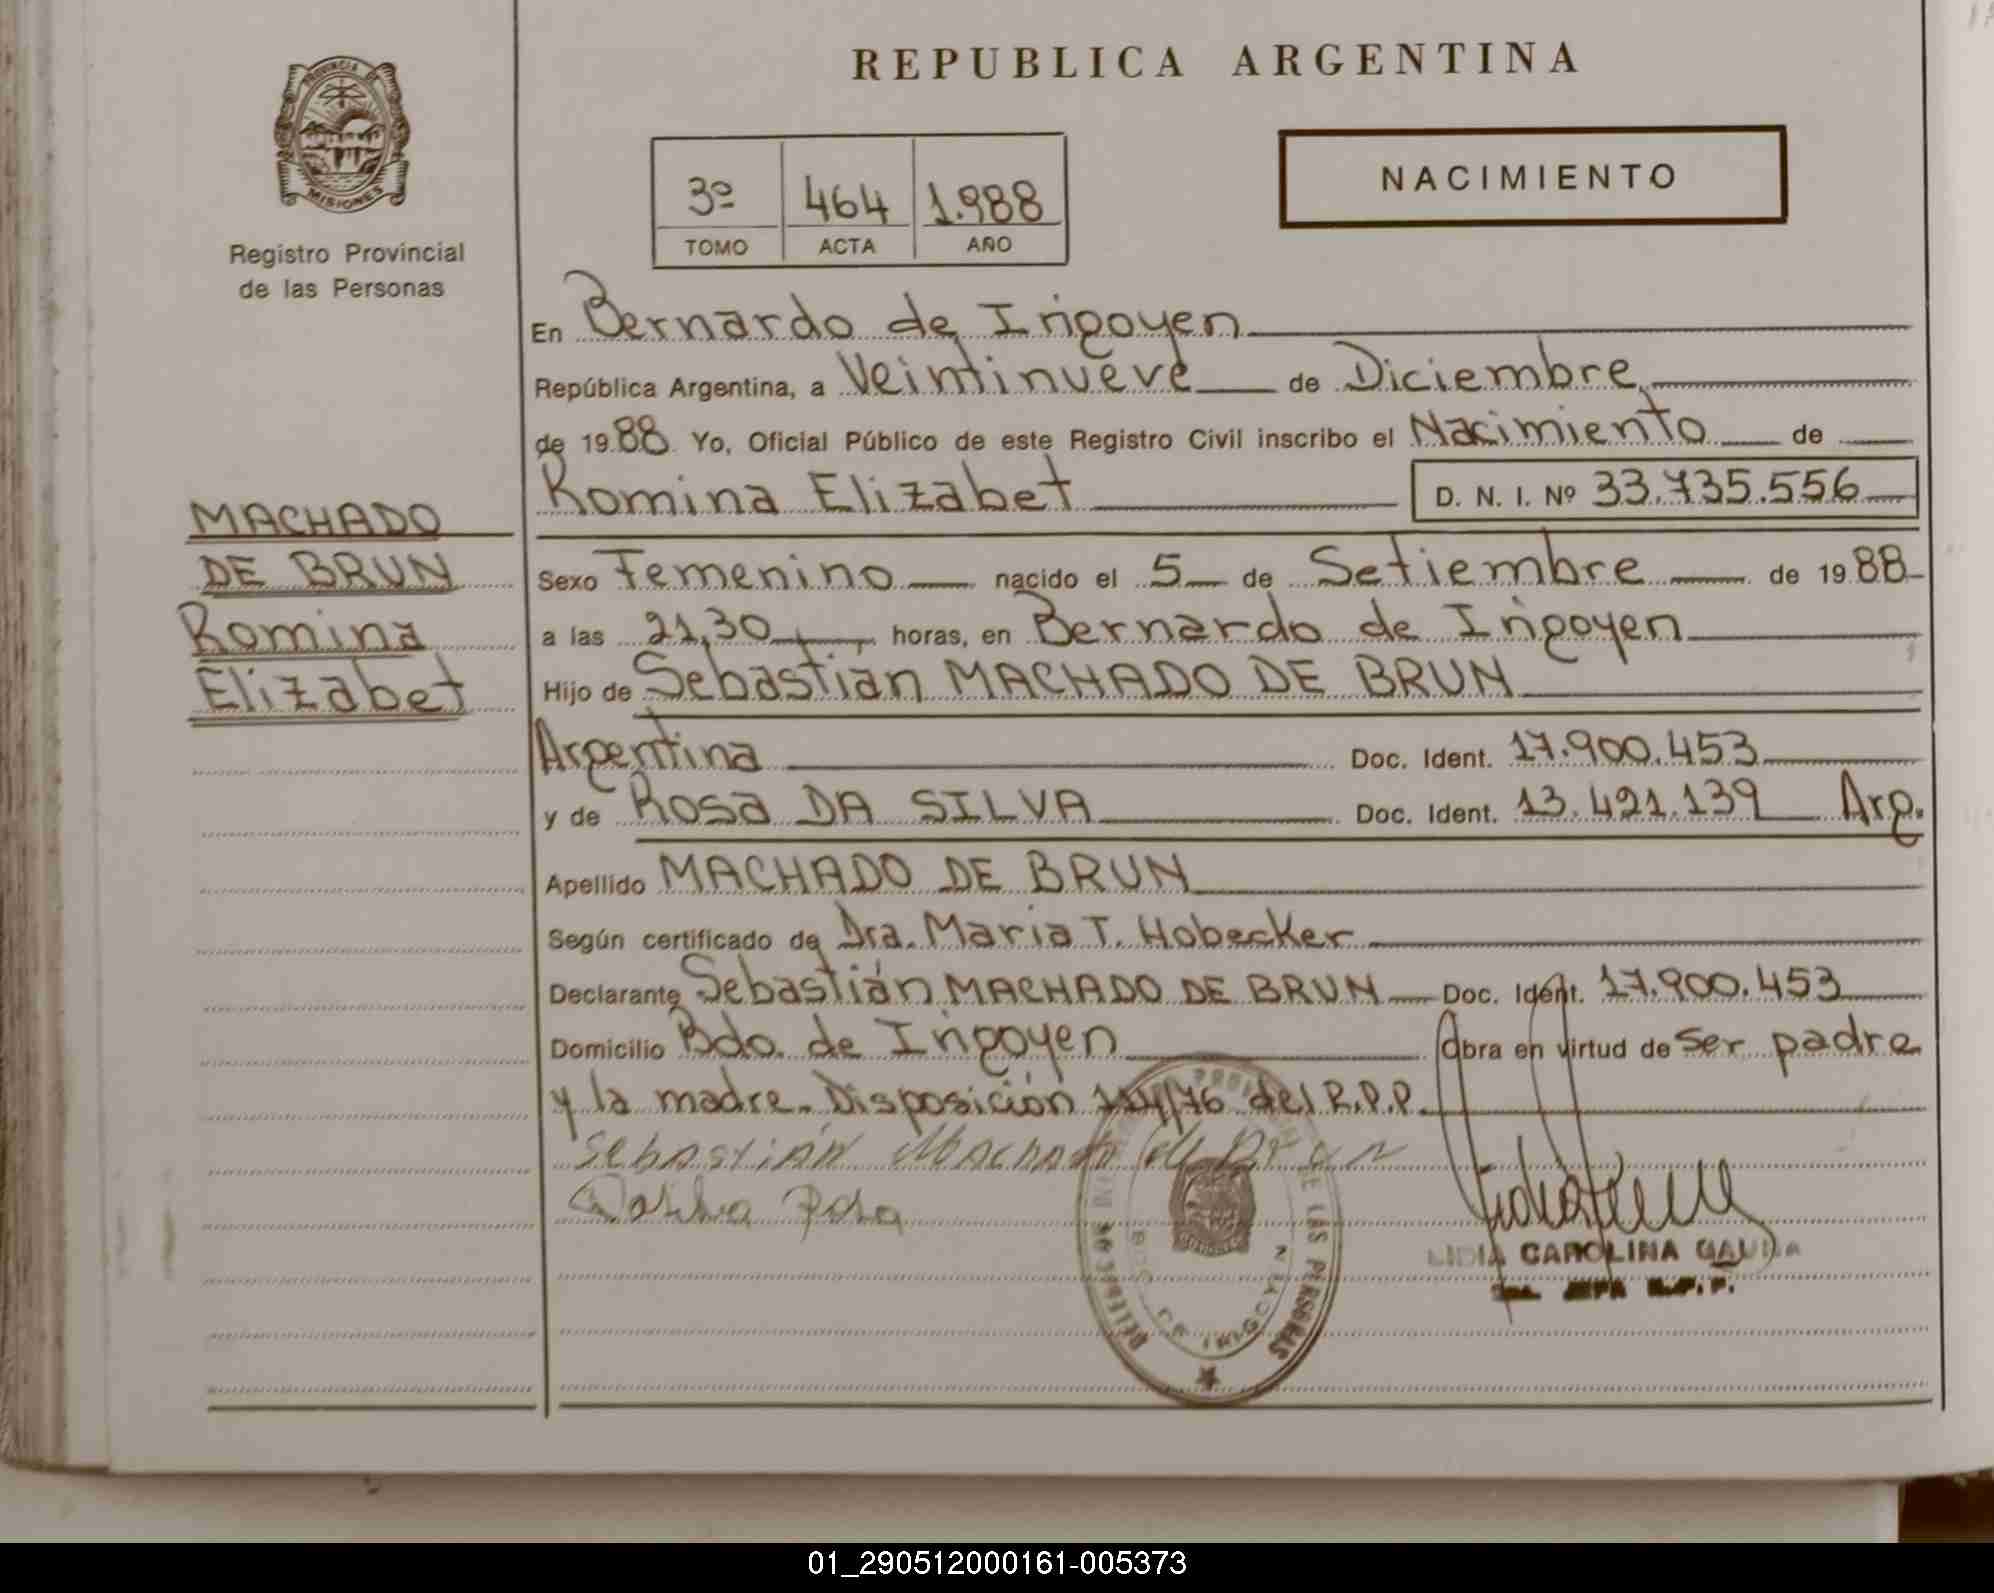 REPUBLICA ARGENTINA
PROVINCIA DE
MISIONES
Registro Provincial
de las Personas
3º 464 1.988
TOMO ACTA AÑO
NACIMIENTO
En Bernardo de Irigoyen
República Argentina, a Veintinueve de Diciembre
de 1988 Yo, Oficial Público de este Registro Civil inscribo el Nacimiento de
Romina Elizabet D. N. I. Nº 33.735.556
MACHADO
DE BRUN
Romina
Elizabet
Sexo Femenino nacido el 5 de Setiembre de 1988
a las 21,30 horas, en Bernardo de Irigoyen
Hijo de Sebastian MACHADO DE BRUN
Argentina Doc. Ident. 17.900.453
y de Rosa DA SILVA Doc. Ident. 13.421.139 Arg.
Apellido MACHADO DE BRUN
Según certificado de Dra. Maria T. Hobecker
Declarante Sebastián MACHADO DE BRUN Doc. Ident. 17.900.453
Domicilio Bdo. de Irigoyen Obra en virtud de ser padre
y la madre. Disposición /76 del R.P.P.
Sebastián Machado de Brun
Rosa
DELEGACION PROVINCIAL DE LAS PERSONAS
DE IRIGOYEN
LIDIA CAROLINA
JEFA R.P.P.
01_290512000161-005373